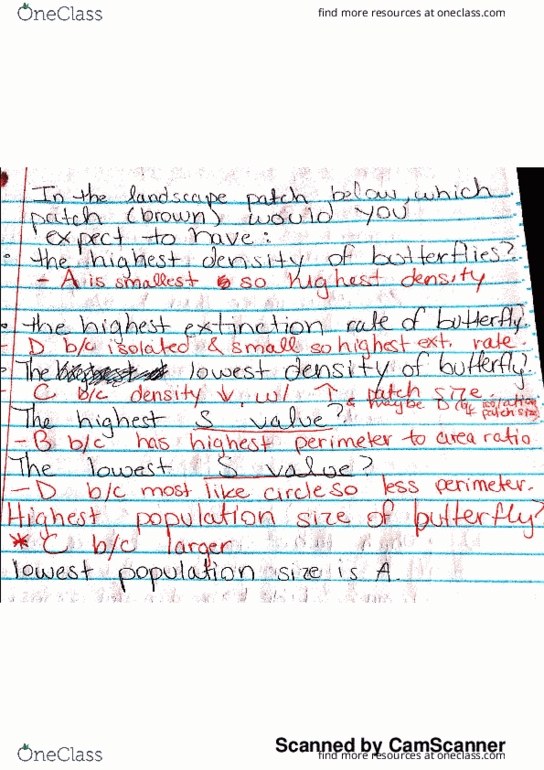 OneClass
find more resources at oneclass.com
In the landscape patch below, which
patch (brown) would you
expect to have:
the highest density of butterflies?
- A is smallest so highest density
the highest extinction rate of butterfly.
- D b/c isolated & small so highest ext. rate.
The lowest density of butterfly?
C b/c density ↓ w/ ↑ patch size
& maybe D b/c isolation
patch size
The highest S value?
- B b/c has highest perimeter to area ratio
The lowest S value?
- D b/c most like circle so less perimeter.
Highest population size of butterfly?
* C b/c larger
lowest population size is A.
Scanned by CamScanner
OneClass
find more resources at oneclass.com